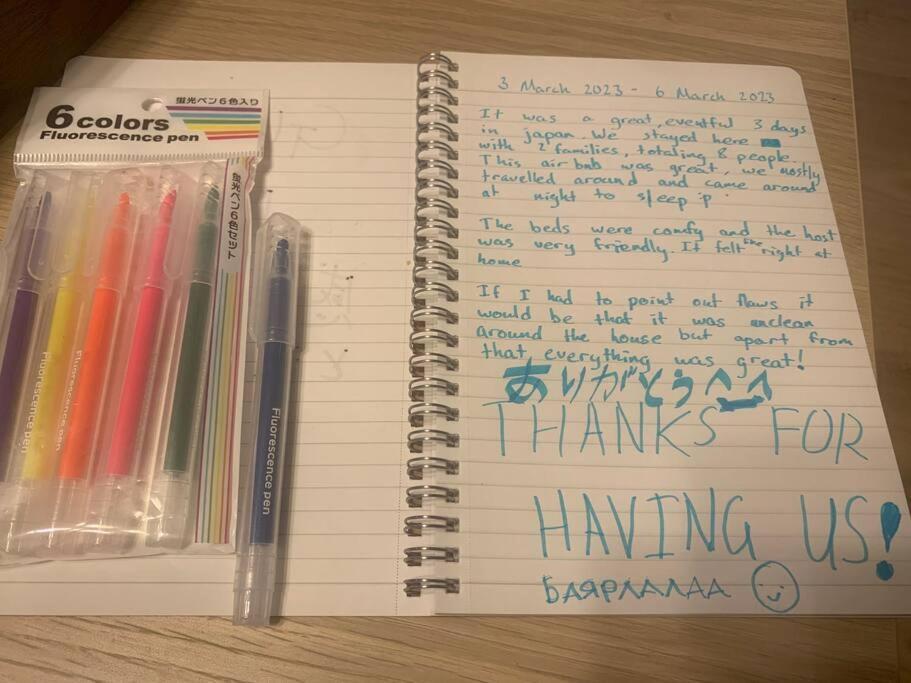 蛍光ペン6色入り
6 colors
Fluorescence pen
蛍光ペン6色セット
Fluorescence pen
Fluorescence pen
Fluorescence pen
3 March 2023 - 6 March 2023
It was a great, eventful 3 days
in japan. We stayed here
with 2 families, totaling 8 people.
This air bnb was great, we mostly
travelled around and came around
at night to sleep :p
The beds were comfy and the host
was very friendly. It felt like right at
home
If I had to point out flaws it
would be that it was unclean
around the house but apart from
that everything was great!
ありがとう^_^
THANKS FOR
HAVING US!
БАЯРЛАЛАА